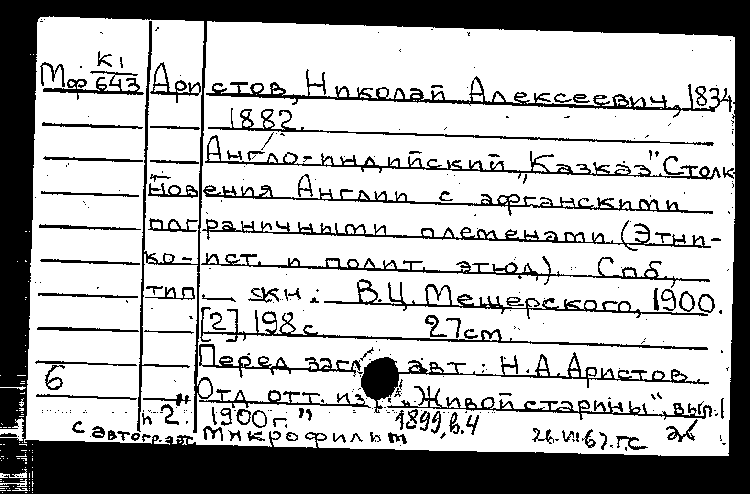 Мф К1/643 Аристов, Николай Алексеевич, 1834
1882.
Англо-индийский „Казказ" Столк
новения Англии с афганскими
пограничными племенами. (Этни-
ко-ист. и полит. этюд). Спб.,
тип. кн. В.Ц. Мещерского, 1900.
[2], 198 с 27 см.
Перед загл. авт.: Н.А. Аристов.
6 Отд. отт. из „Живой старины", вып. 1
и 2" 1900 г." 1899, в. 4
с автогр. авт. Микрофильм 26.VII.67. ГС